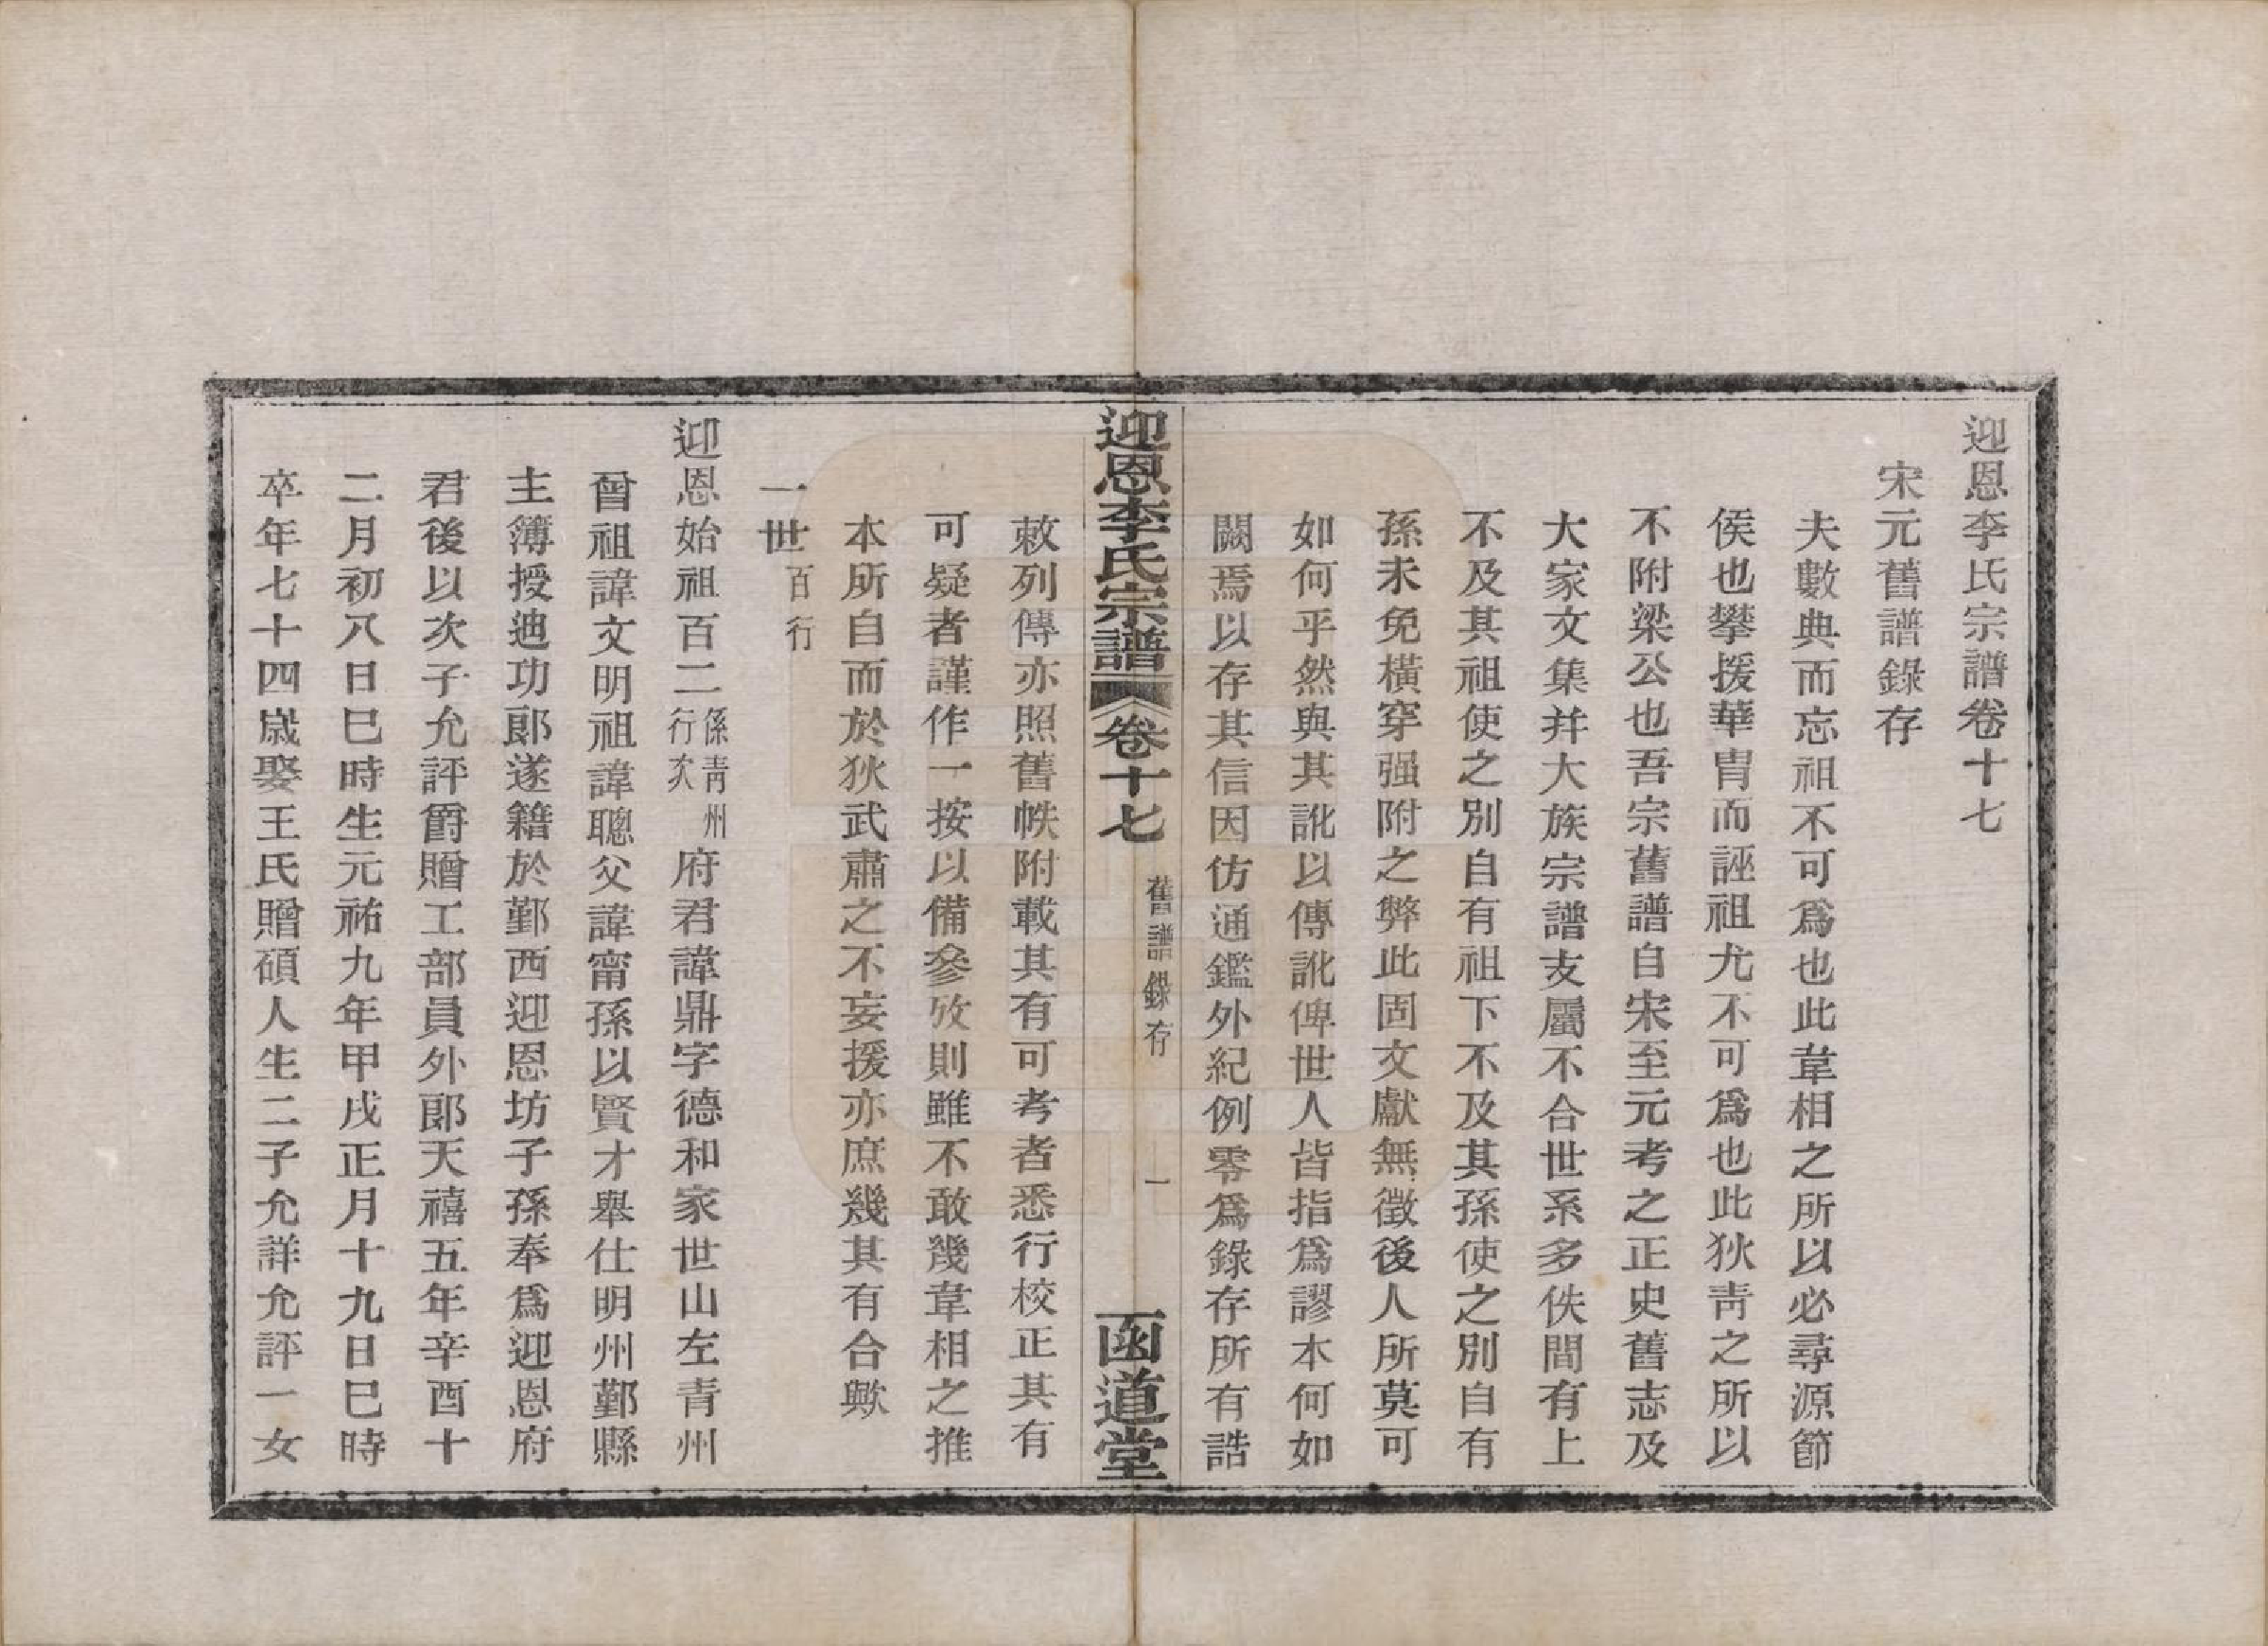 迎恩李氏宗譜卷十七
宋元舊譜錄存
夫數典而忘祖不可爲也此韋相之所以必尋源節
侯也攀援華胄而誣祖尤不可爲也此狄靑之所以
不附梁公也吾宗舊譜自宋至元考之正史舊志及
大家文集幷大族宗譜支屬不合世系多佚間有上
不及其祖使之別自有祖下不及其孫使之別自有
孫未免橫穿强附之弊此固文獻無徵後人所莫可
如何乎然與其訛以傳訛俾世人皆指爲謬本何如
闕焉以存其信因仿通鑑外紀例零爲錄存所有誥
迎恩李氏宗譜 卷十七 舊譜錄存 一 函道堂
敕列傳亦照舊帙附載其有可考者悉行校正其有
可疑者謹作一按以備參攷則雖不敢幾韋相之推
本所自而於狄武肅之不妄援亦庶幾其有合歟
一世百行
迎恩始祖百二係靑州行次府君諱鼎字德和家世山左靑州
曾祖諱文明祖諱聰父諱甯孫以賢才舉仕明州鄞縣
主簿授迪功郞遂籍於鄞西迎恩坊子孫奉爲迎恩府
君後以次子允評爵贈工部員外郞天禧五年辛酉十
二月初八日巳時生元祐九年甲戌正月十九日巳時
卒年七十四歲娶王氏贈碩人生二子允詳允評一女